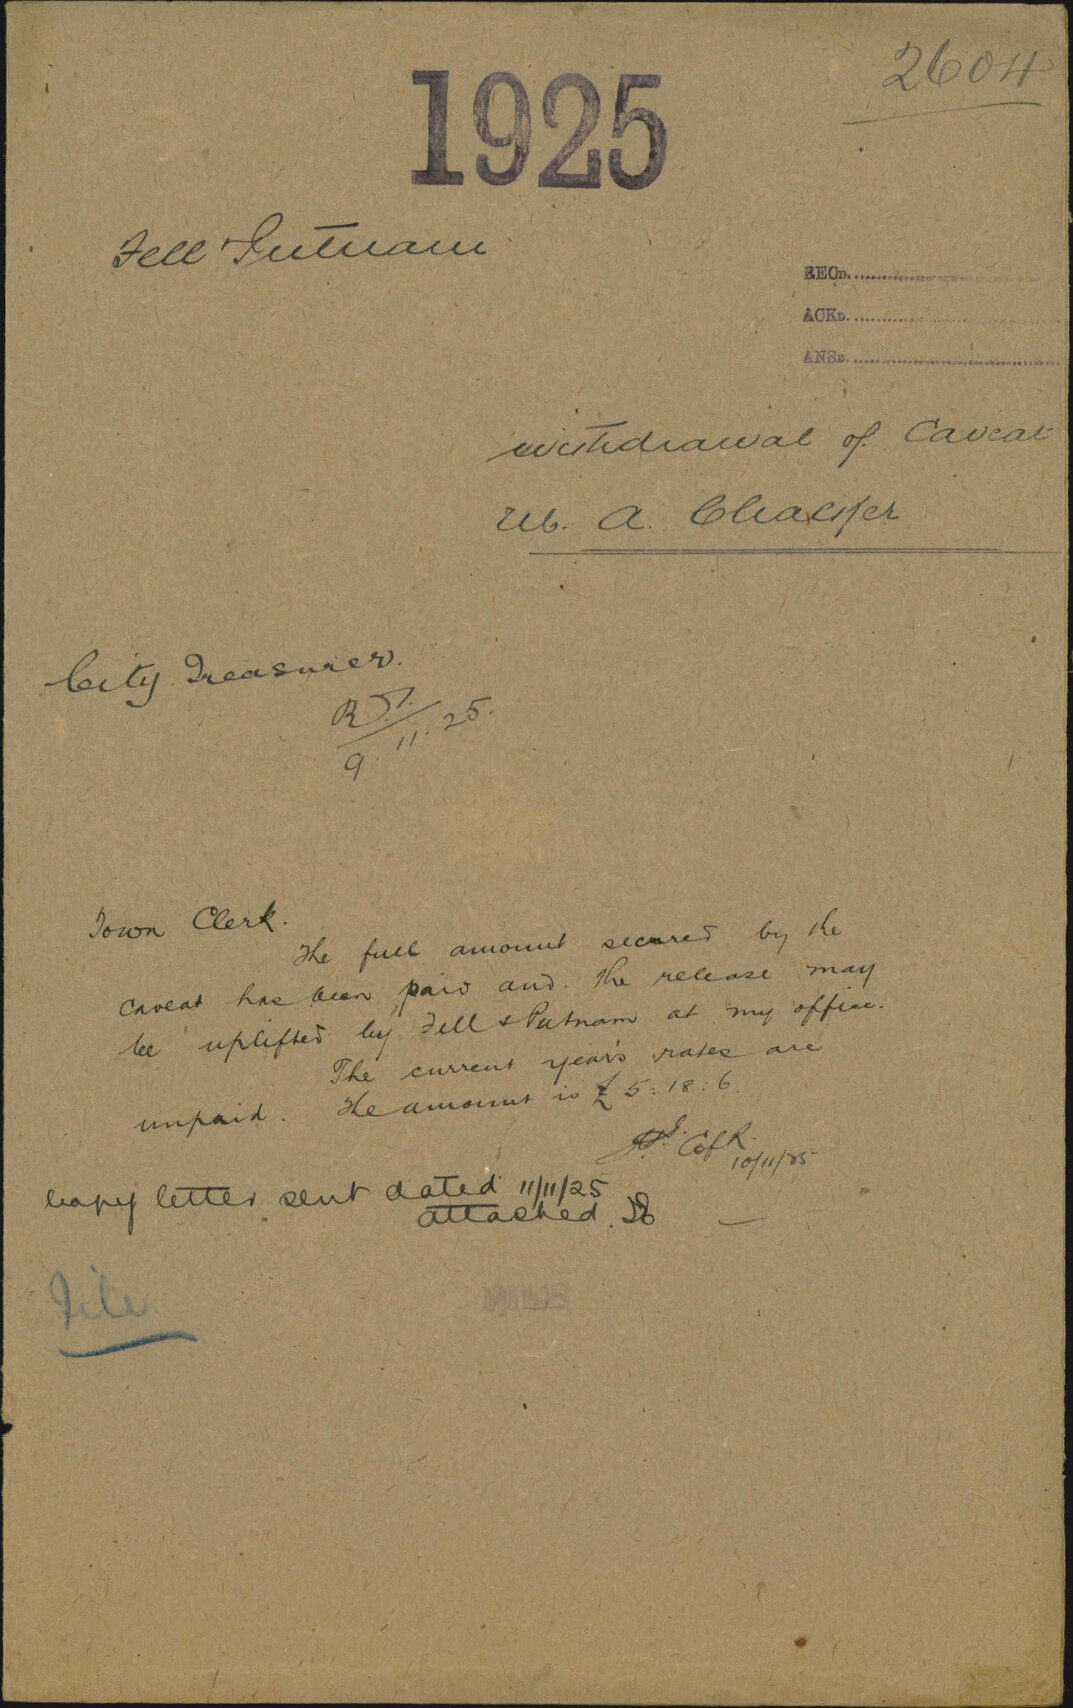 2604
1925
Fell & Putnam
RECD.
ACKD.
ANSD.
withdrawal of Caveat
A.
City Treasurer.
9.11.25.
Town Clerk.
The full amount secured by the
caveat has been paid and the release may
be uplifted by Fell & Putnam at my office.
The current year's rates are
unpaid. The amount is £5:18:6.
C of R.
10/11/25
Copy letter sent dated 11/11/25
attached.
File